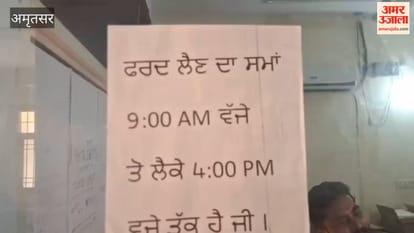 अमृतसर
अमर उजाला
amarujala.com
ਫਰਦ ਲੈਣ ਦਾ ਸਮਾਂ
9:00 AM ਵੱਜੇ
ਤੋ ਲੈਕੇ 4:00 PM
ਵਜੇ ਤੱਕ ਹੈ ਜੀ।